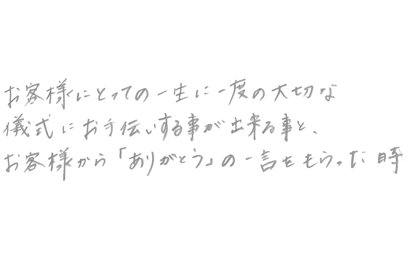 お客様にとっての一生に一度の大切な
儀式にお手伝いする事が出来る事と、
お客様から「ありがとう」の一言をもらった時